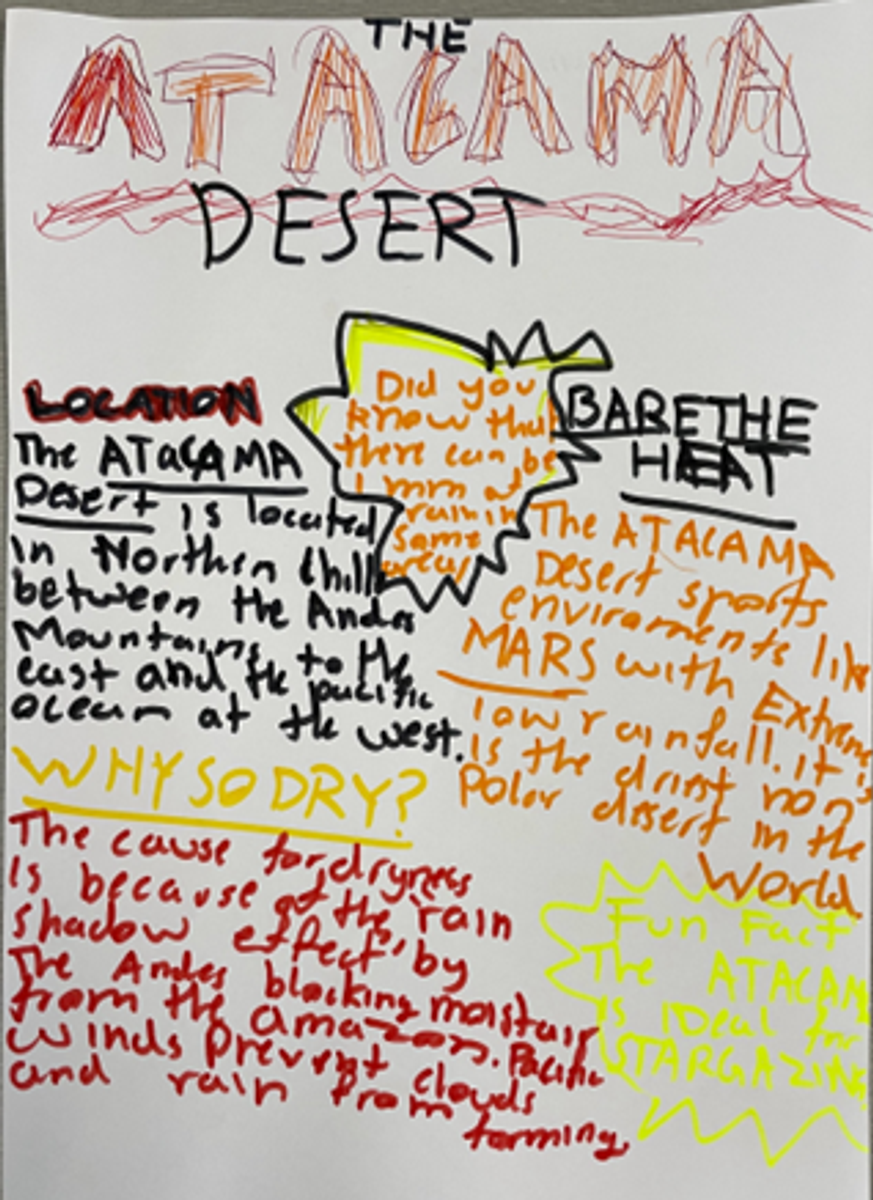 THE
ATACAMA
DESERT
LOCATION
The ATaCAMA
Desert is located
in Northen Chille
between the Andes
Mountains to the
east and the pacific
ocean at the west.
Did you
know that
there can be
1 mm of
rain in
some
areas
BARE THE
HEAT
The ATACAMA
Desert sports
enviraments like
MARS with Extreme
low rainfall. it is
is the driest non
Polar desert in the
World.
WHY SO DRY?
The cause for dryness
Is because of the rain
shadow effect by
The Andes blocking moistair
from the amazon. Pacific
winds Prevent clouds
and rain from
forming.
Fun Fact
The ATACAMA
is IDeal for
STARGAZING